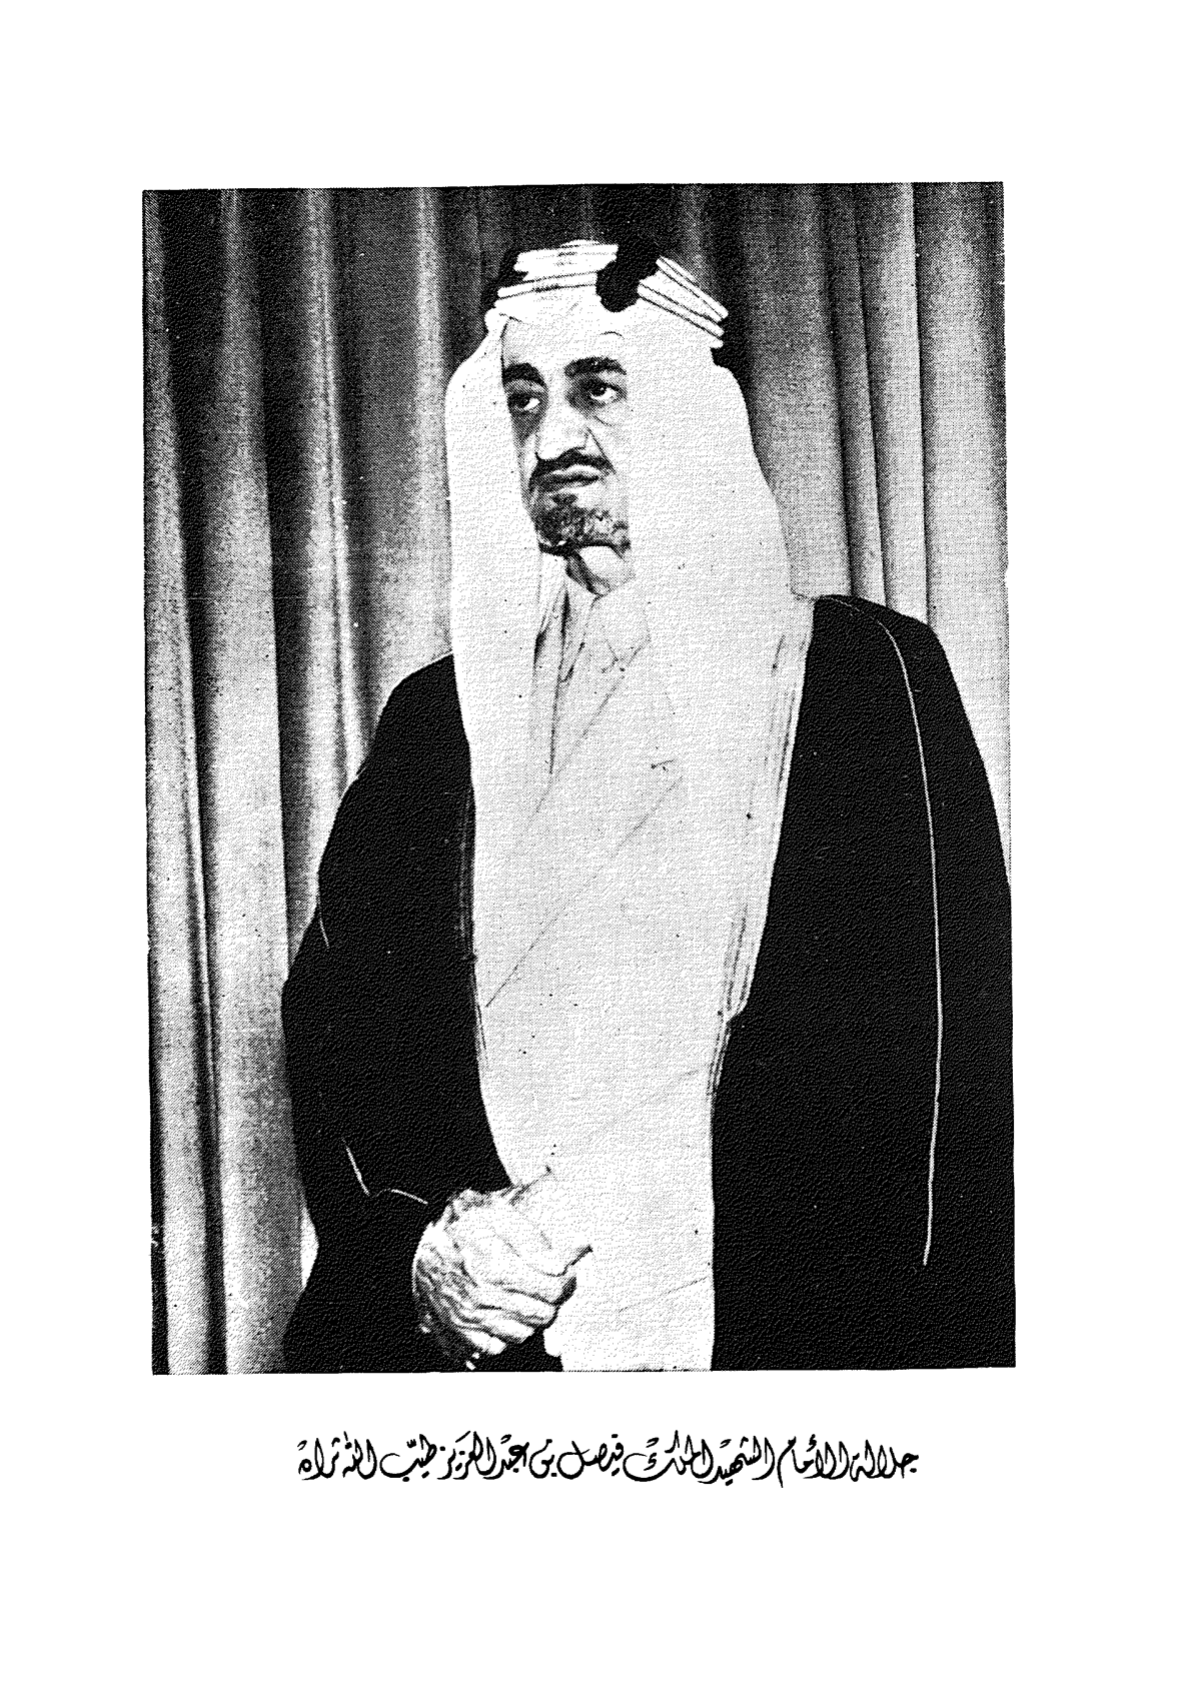 جلالة الإمام الشهيد الملك فيصل بن عبد العزيز طيّب الله ثراه